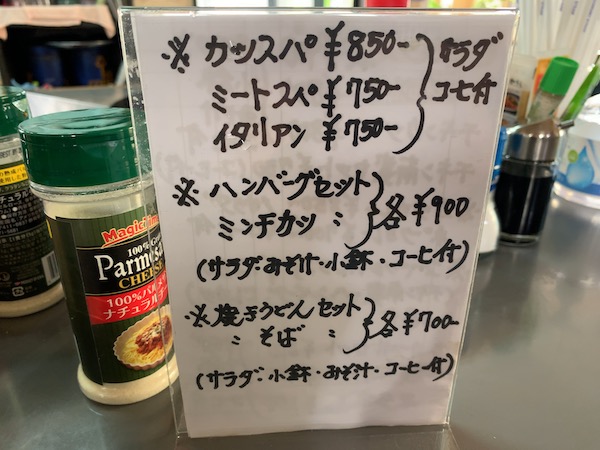 ※ カツスパ ¥850-
ミートスパ ¥750-
イタリアン ¥750-
サラダ
コーヒー付
※ ハンバーグセット
ミンチカツ 〃
各¥900
(サラダ・みそ汁・小鉢・コーヒー付)
※ 焼きうどんセット
〃 そば 〃
各¥700-
(サラダ・小鉢・みそ汁・コーヒー付)
100%
Parmesan
CHEESE
100%
ナチュラル